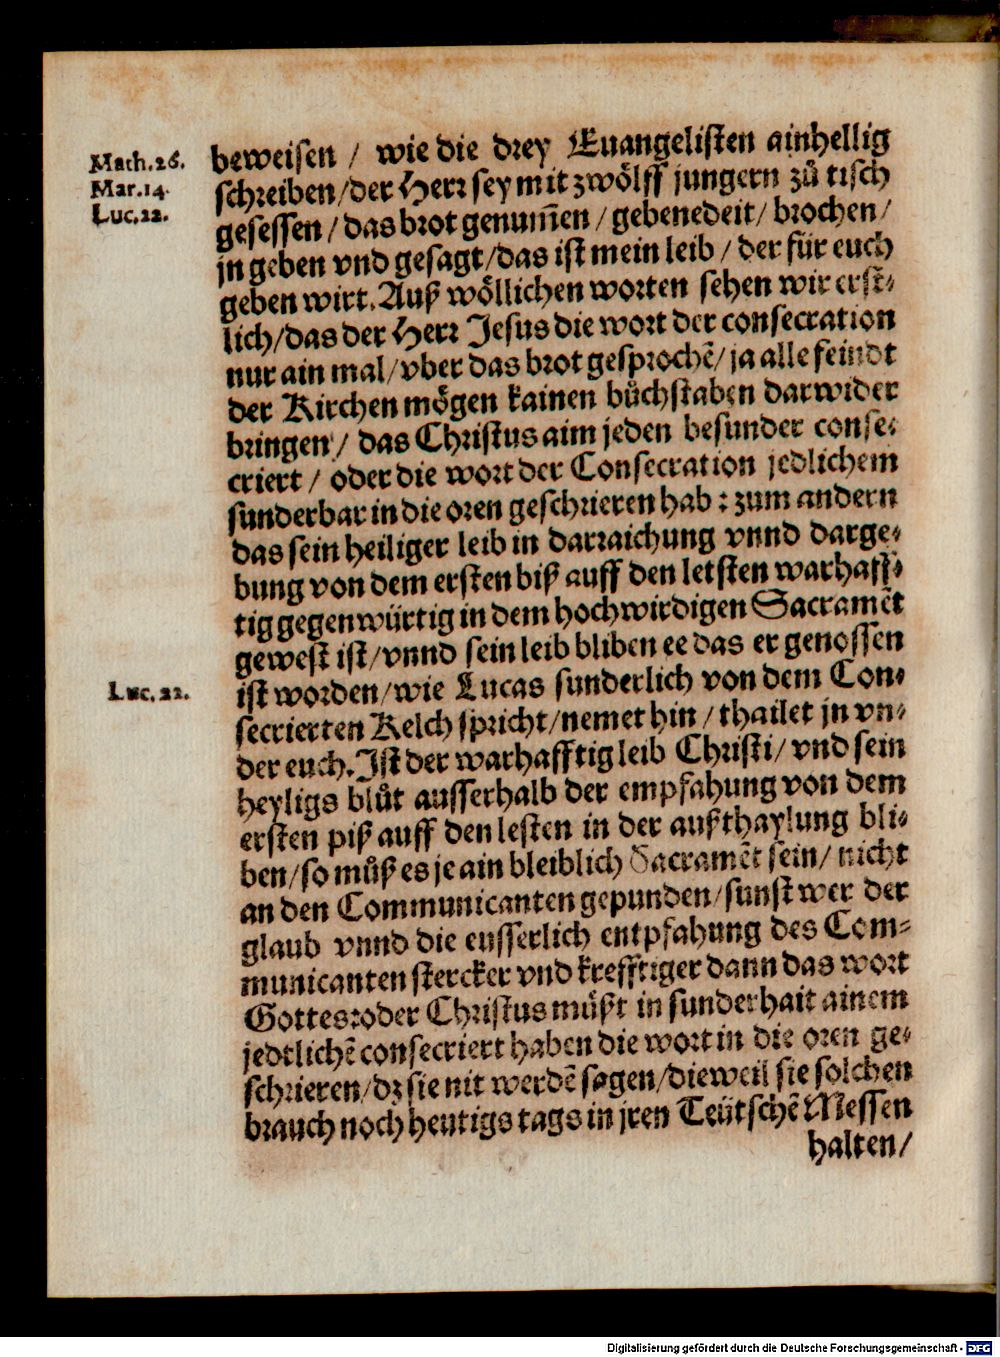 Math.26.
Mar.14.
Luc.22.
beweisen / wie die drey Euangelisten ainhellig
schreiben/der Herr sey mit zwölff jungern zů tisch
gesessen / das brot genum̃en / gebenedeit / brochen /
jn geben vnd gesagt/das ist mein leib / der für euch
geben wirt. Auß wöllichen worten sehen wir erst-
lich/das der Herr Jesus die wort der consecration
nur ain mal/vber das brot gesprochẽ/ ja alle feindt
der Kirchen mögen kainen bůchstaben darwider
bringen / das Christus aim jeden besunder conse-
criert / oder die wort der Consecration jedlichem
sunderbar in die oren geschrieren hab : zum andern
das sein heiliger leib in darraichung vnnd darge-
bung von dem ersten biß auff den letsten warhaff-
tig gegenwürtig in dem hochwirdigen Sacramẽt
gewest ist/vnnd sein leib bliben ee das er genossen
Luc.22.
ist worden/wie Lucas sunderlich von dem Con-
secrierten Kelch spricht/nemet hin / thailet jn vn-
der euch. Ist der warhafftig leib Christi/ vnd sein
heyligs blůt ausserhalb der empfahung von dem
ersten piß auff den lesten in der außthaylung bli-
ben/so můß es je ain bleiblich Sacramẽt sein/ nicht
an den Communicanten gepunden/sunst wer der
glaub vnnd die eusserlich entpfahung des Com-
municanten stercker vnd krefftiger dann das wort
Gottes:oder Christus müßt in sunderhait ainem
jedtlichẽ consecriert haben die wort in die oren ge-
schrieren/dz sie nit werdẽ sagen/dieweil sie solchen
brauch noch heutigs tags in jren Teütschẽ Messen
halten/
Digitalisierung gefördert durch die Deutsche Forschungsgemeinschaft - DFG